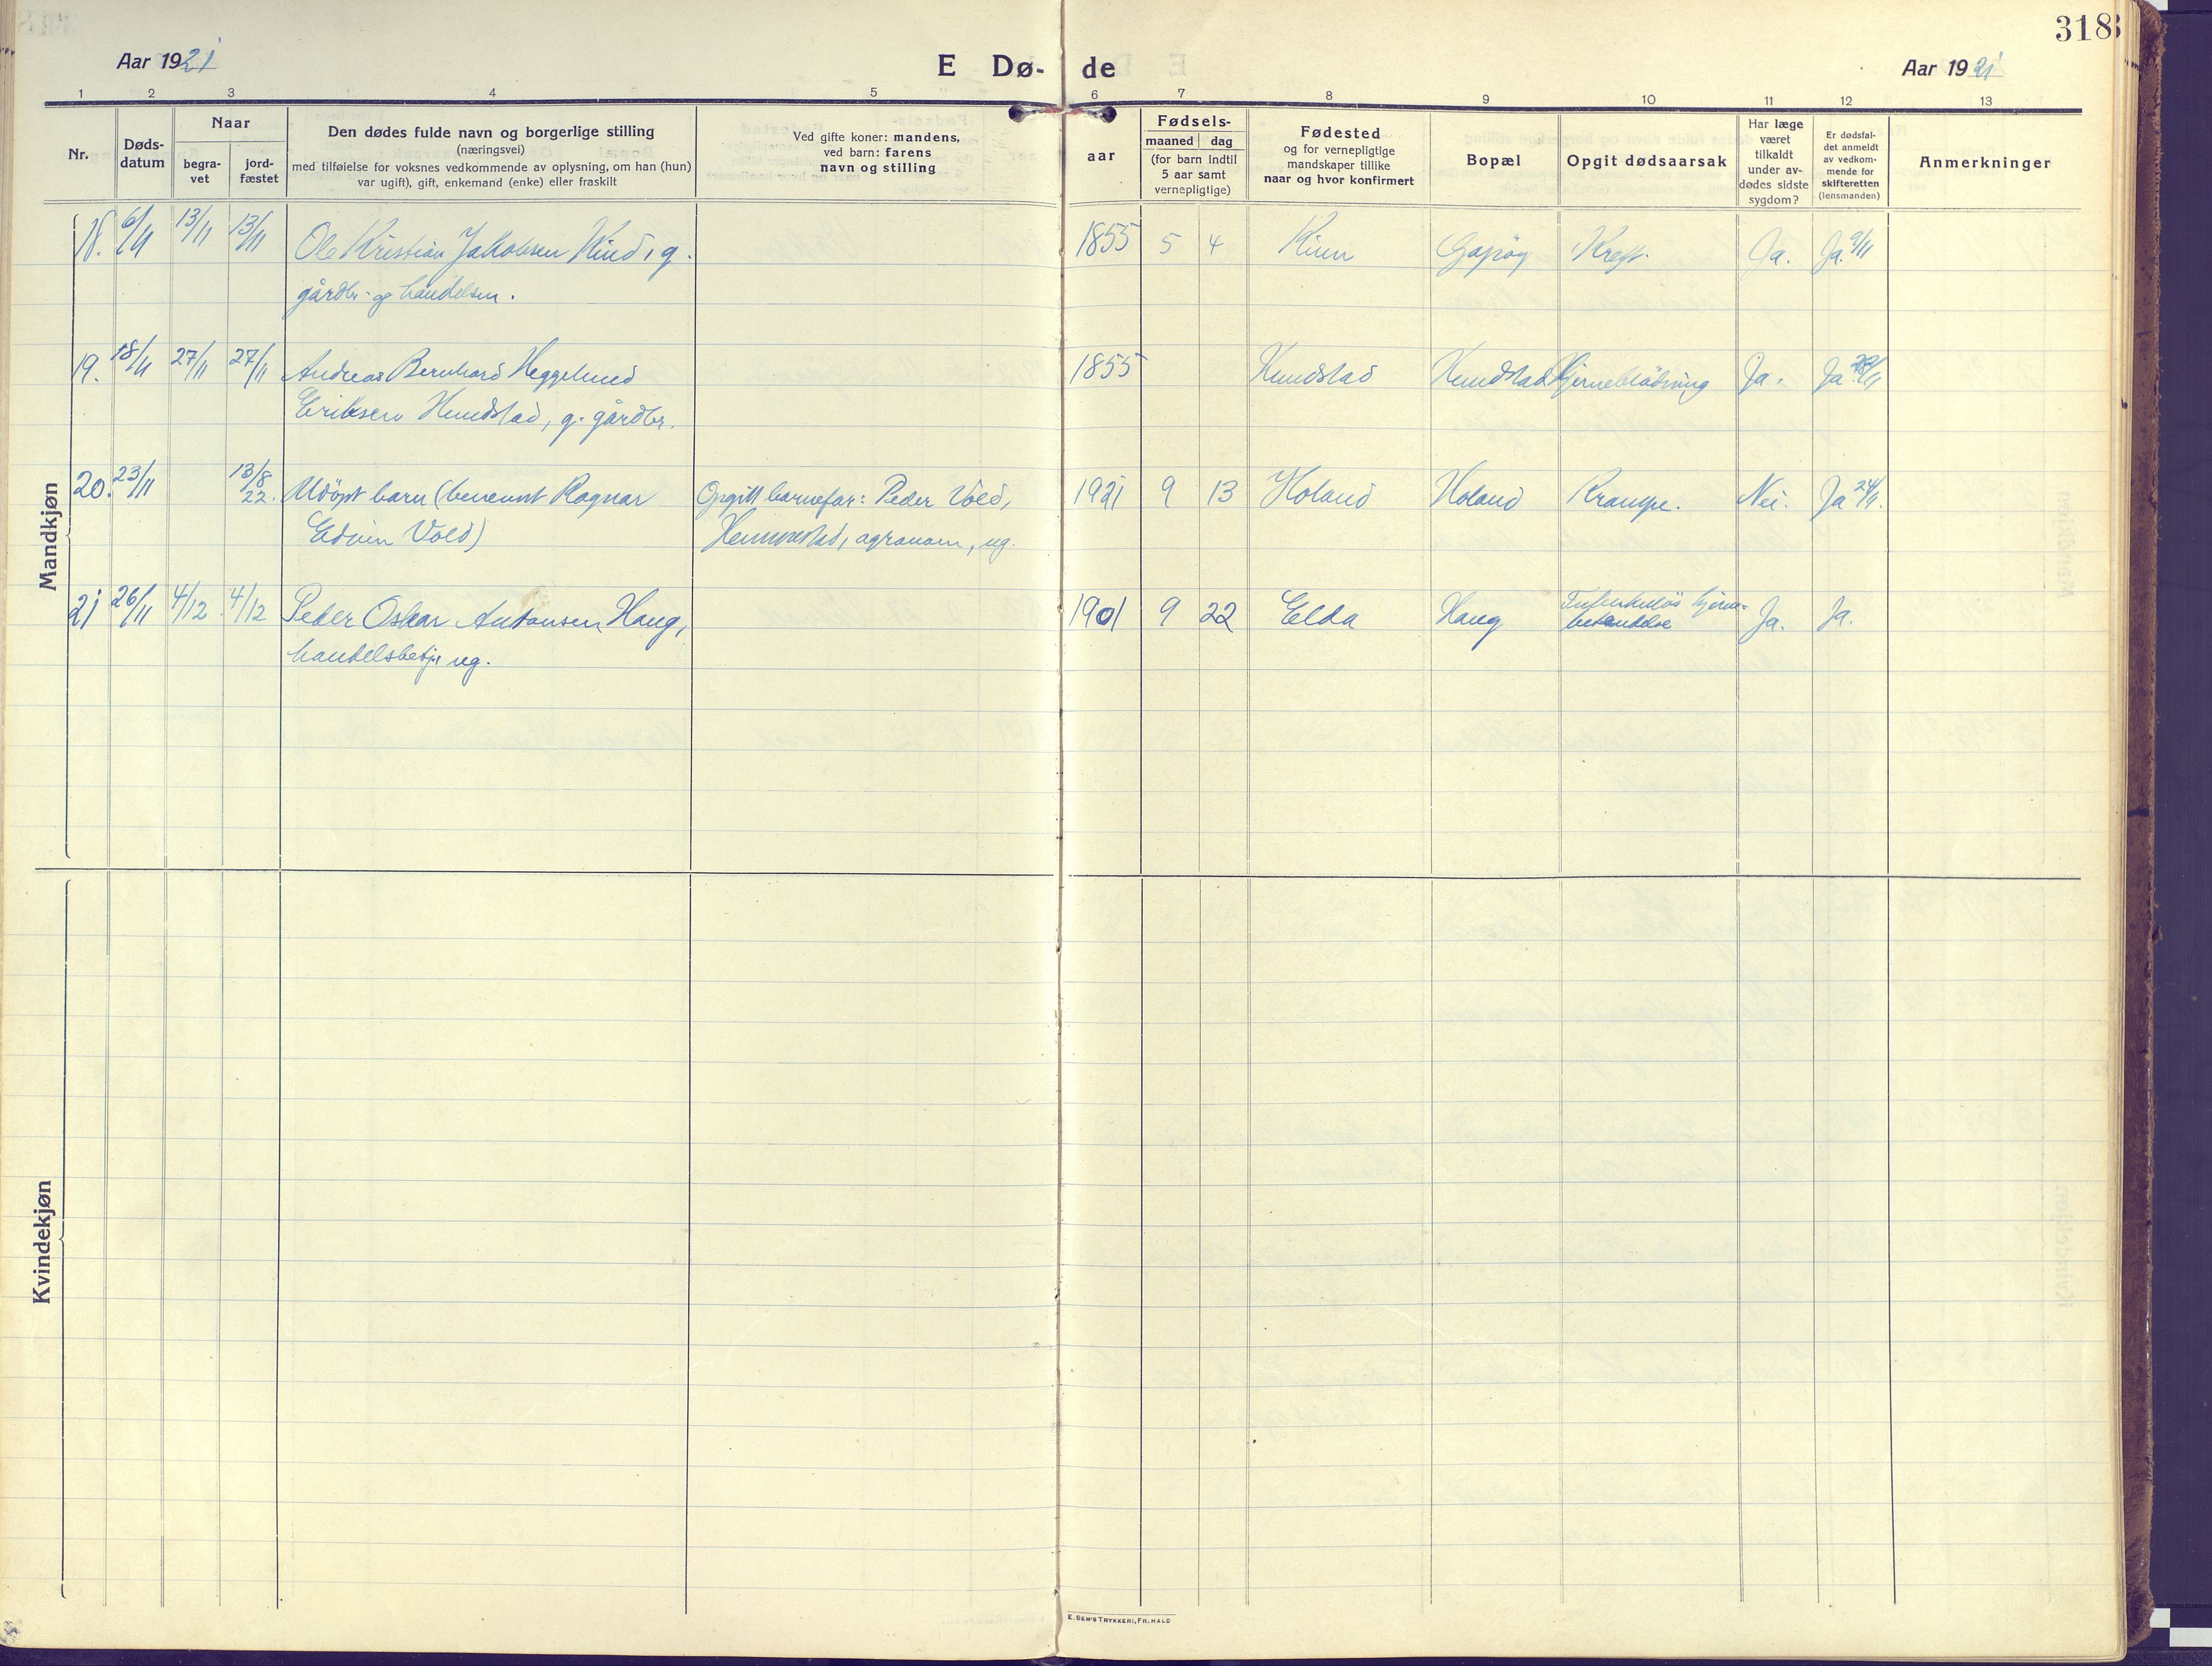 318
Aar 1921
E Dø- de
Aar 1921
1 2 3 4 5 6 7 8 9 10 11 12 13
Nr.
Døds-
datum
Naar
begra-
vet
jord-
fæstet
Den dødes fulde navn og borgerlige stilling
(næringsvei)
med tilføielse for voksnes vedkommende av oplysning, om han (hun)
var ugift), gift, enkemand (enke) eller fraskilt
Ved gifte koner: mandens,
ved barn: farens
navn og stilling
aar
Fødsels-
maaned dag
(for barn indtil
5 aar samt
vernepligtige)
Fødested
og for vernepligtige
mandskaper tillike
naar og hvor konfirmert
Bopæl
Opgit dødsaarsak
Har læge
været
tilkaldt
under av-
dødes sidste
sygdom?
Er dødsfal-
det anmeldt
av vedkom-
mende for
skifteretten
(lensmanden)
Anmerkninger
Mandkjøn
18. 6/11 13/11 13/11 Ole Kristian Jakobsen Kind, g. 1855 5 4 Kinn Gapøy Kreft. Ja. Ja. 9/11
gårdbr. og handelsm.
19. 18/11 27/11 27/11 Andreas Bernhard Heggelund 1855 Kundstad Kundstad Hjerneblødning Ja. Ja
Eriksen Hundstad, g. gårdbr.
20. 23/11 13/8 22. Udöpt barn (benevnt Ragnar Opgitt barnefar: Peder Vold, 1921 9 13 Holand Holand Krampe. Nei. Ja 24/11.
Edvin Vold) Hemmestad, agronom, ug.
21 26/11 4/12 4/12 Peder Oskar Antonsen Haug, 1901 9 22 Elda Haug Tuberkuløs hjerne- Ja. Ja.
betendelse
handelsbetj. ug.
Kvindekjøn
E. SEM'S TRYKKERI, FR.HALD